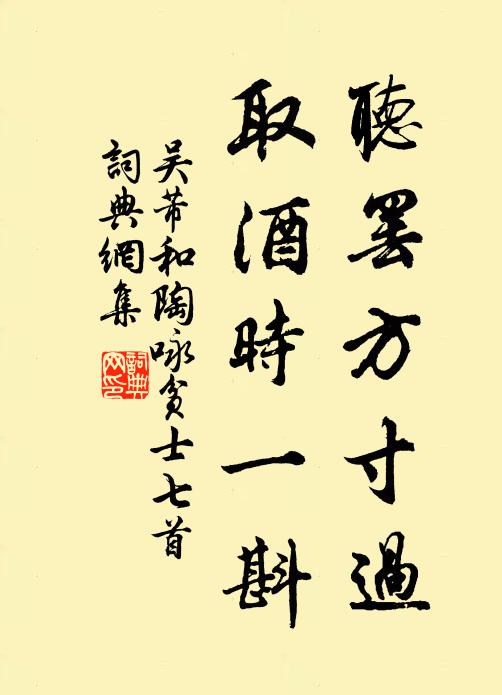 聽罷方寸過
取酒時一斟
吳芾和陶咏貧士七首
詞典網集
詞典
网印